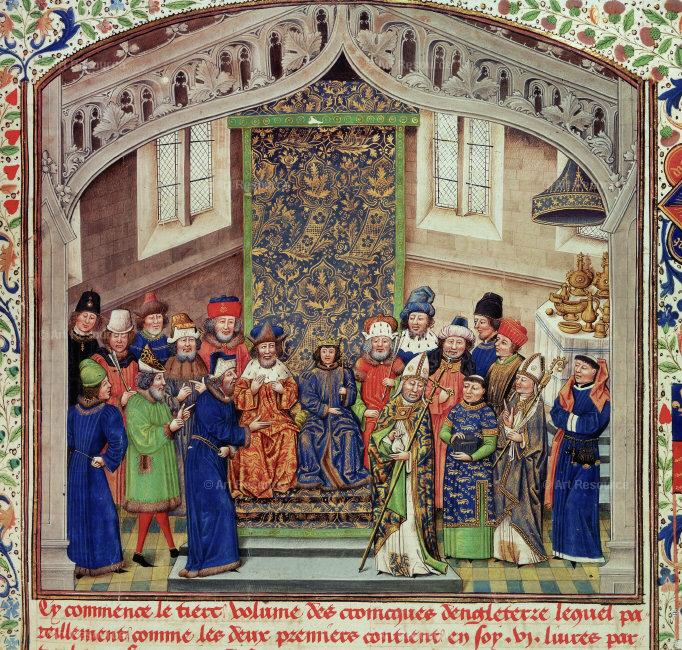 © Art Resource
© Art Resource
Cy commence le tierc volume des cronicques dengleterre lequel pa
reillement comme les deux premiers contient en soy .vi. liures par